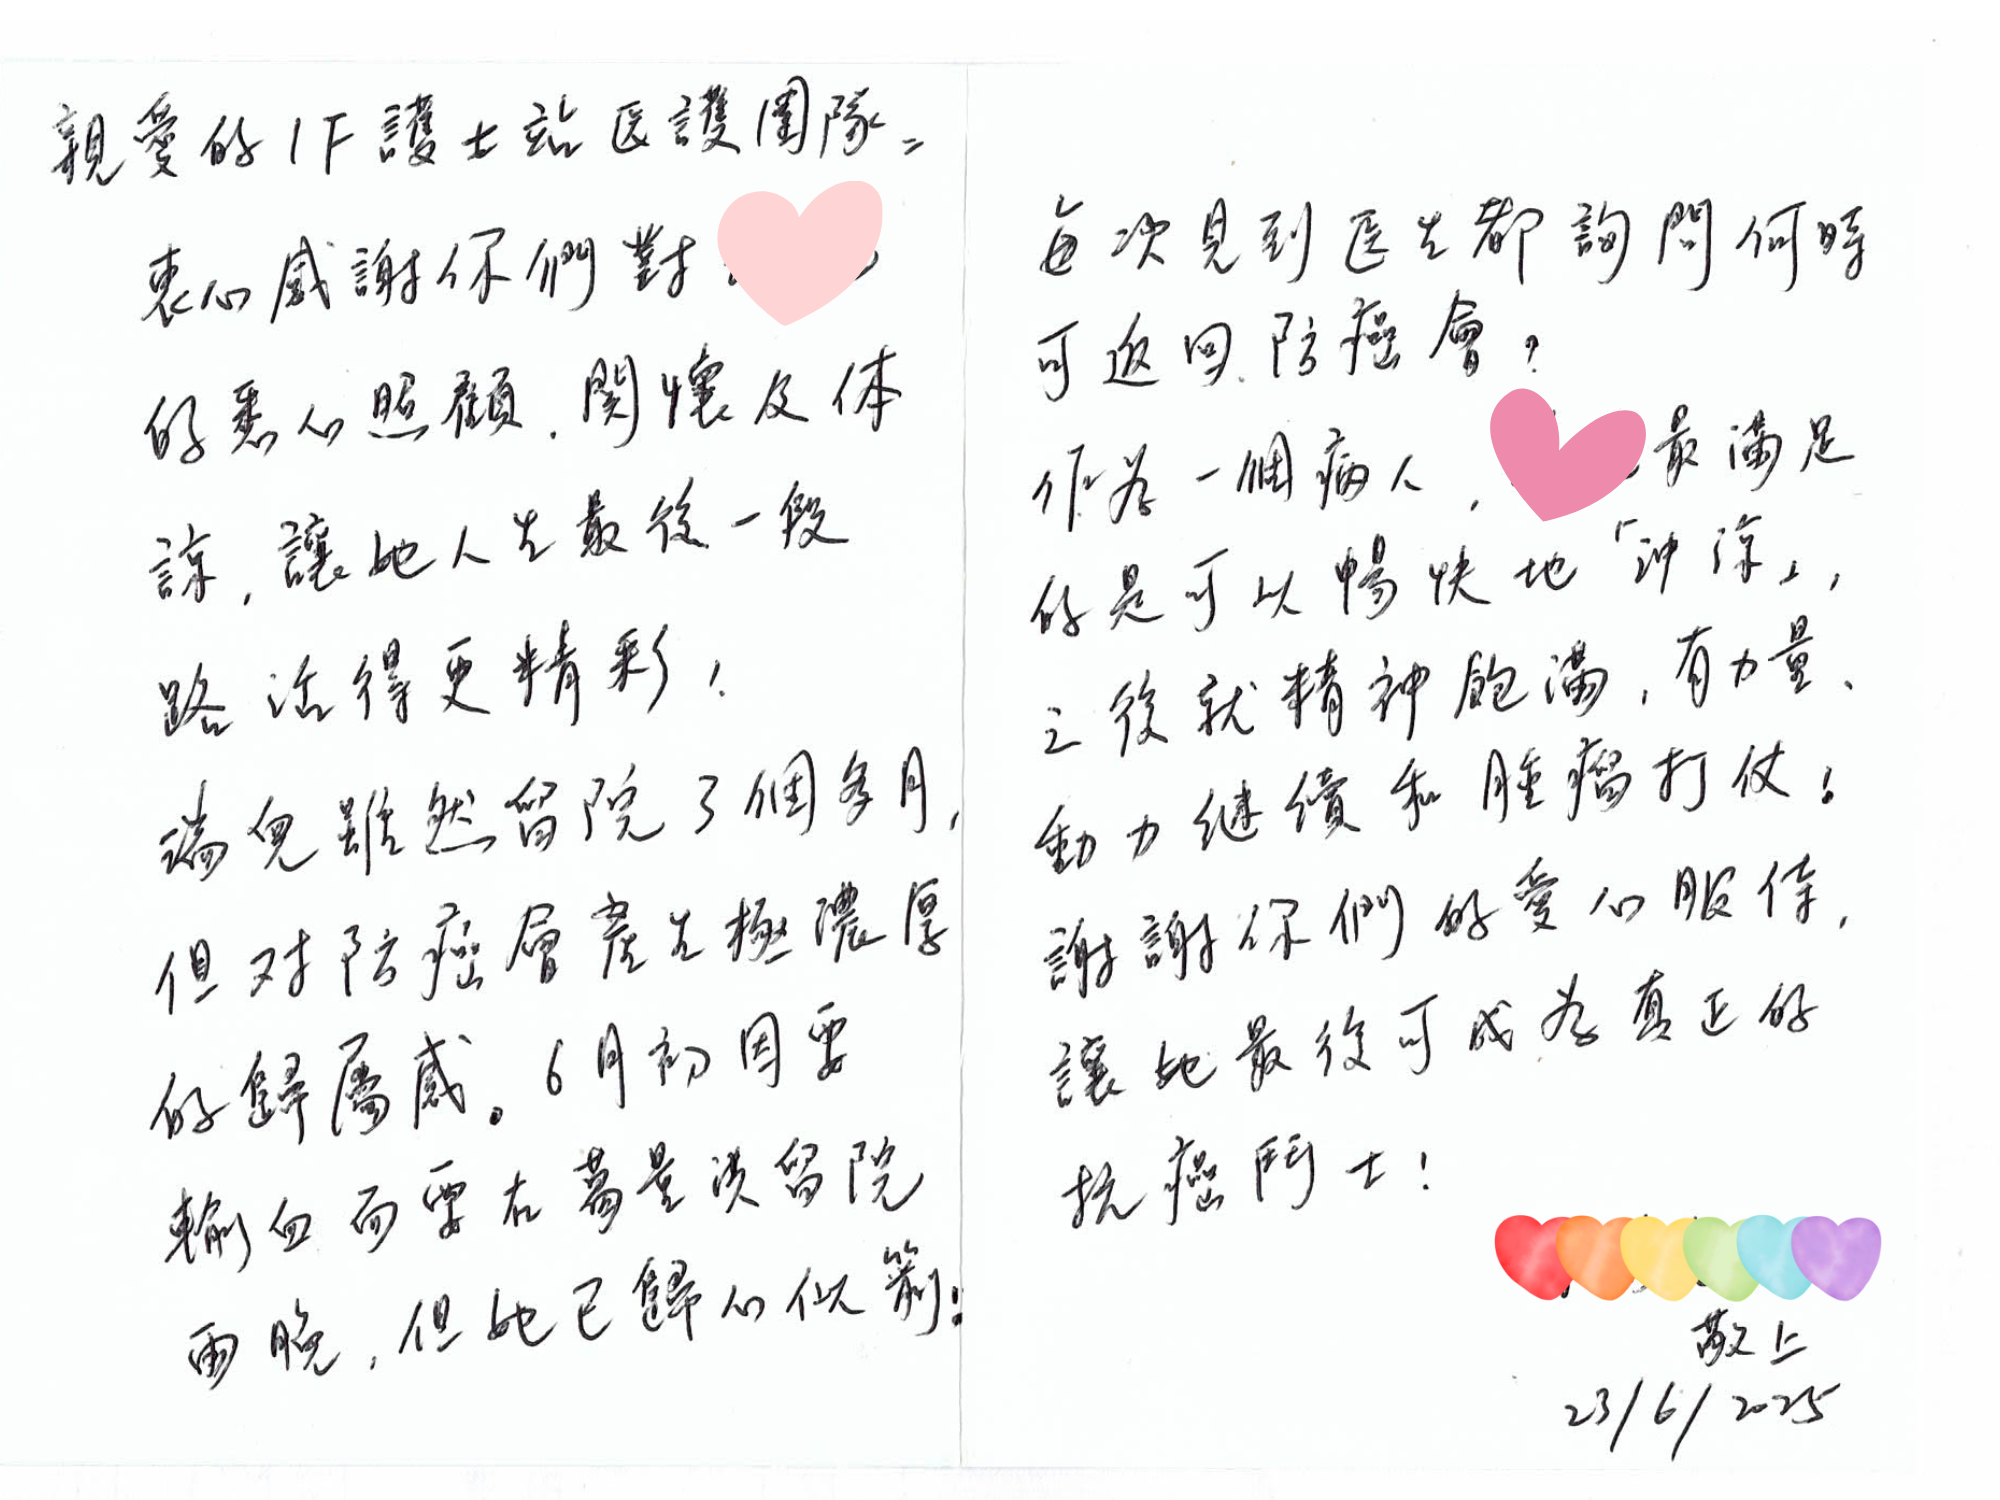 親愛的1F護士站医護團隊：
衷心感謝你們對
的悉心照顧、関懷及体
諒，讓她人生最後一段
路活得更精彩！
端兒雖然留院了個多月，
但对防癌會產生極濃厚
的歸屬感。6月初因要
輸血而要在葛量洪留院
兩晚，但她已歸心似箭！
每次見到医生都詢問何時
可返回防癌會？
作為一個病人， 最滿足
的是可以暢快地「沖涼」，
之後就精神飽滿，有力量、
動力继續和腫瘤打仗！
謝謝你們的愛心服侍，
讓她最後可成為真正的
抗癌鬥士！
敬上
23/6/2025